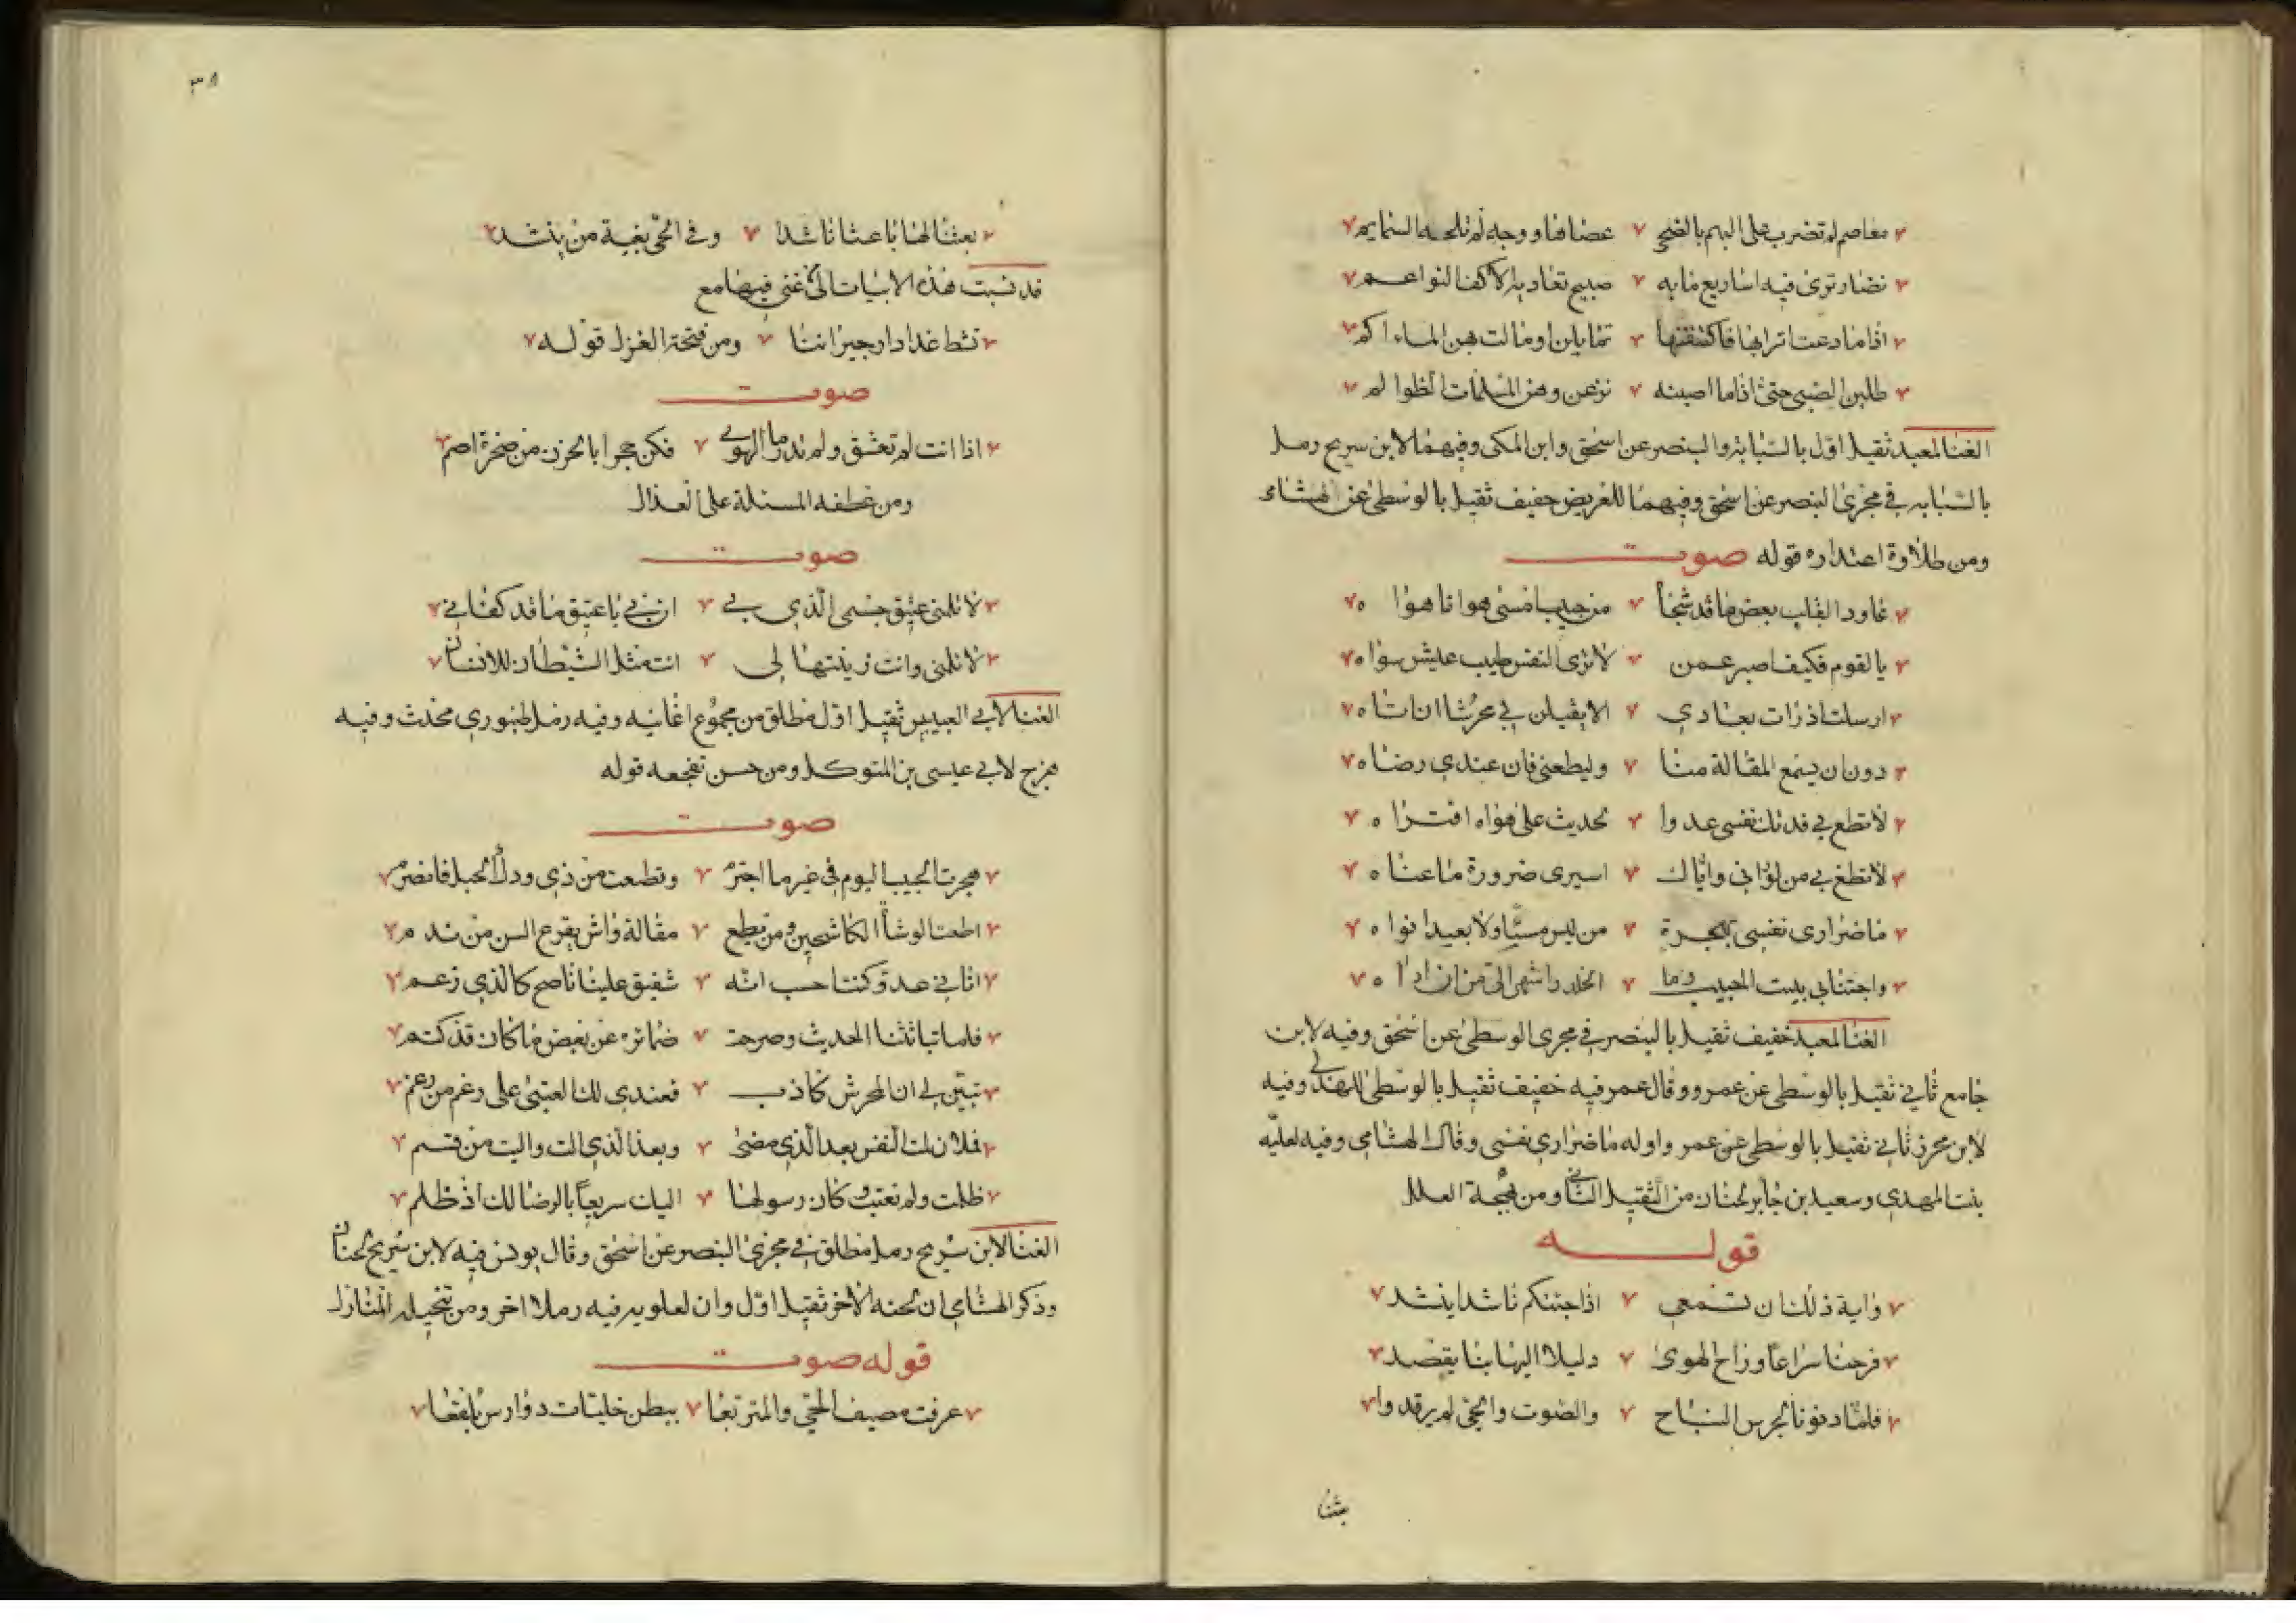 معاصم لم تضرب على البهم بالضحى عصاها ووجه لم تلحه السمايم
نضار ترى فيه اساريع مايه صبيح تغاديه الاكف النواعم
اذا ما دعت اترابها فاكتنفنها تمايلن او مالت بهن الماءاكم
طلبن الصبى حتى اذا ما اصبنه نزعن وهن المسلمات الظوالم
الغنا لمعبد ثقيل اول بالسبابة والبنصر عن اسحق وابن المكى وفيهما لابن سريج رمل
بالسبابه في مجرى البنصر عن اسحق وفيهما للغريض خفيف ثقيل بالوسطى عن الهشامى
ومن طلاوة اعتذاره قوله صوت
عاود القلب بعض ما قد شجا من حبيب امسى هوانا هوا ه
يا لقوم فكيف اصبر عمن لا ترى النفس طيب عيش سوا ه
ارسلت اذ رات بعادي الا يقبلن بي محرشا ان اتا ه
دون ان يسمع المقالة منا وليطعني فان عندي رضا ه
لا تطع بي فدتك نفسى عدوا لحديث على هواه افترا ه
لا تطع بي من لو اني واياك اسيرى ضرورة ما عنا ه
ما ضرارى نفسي بهجرة من ليس مسيّا ولا بعيدا نوا ه
واجتنابي بيت الحبيب وما الخلد باشهى الي من ان ارا ه
الغنا لمعبد خفيف ثقيل بالبنصر في مجرى الوسطى عن اسحق وفيه لابن
جامع ثاني ثقيل بالوسطى عن عمرو وقال عمر فيه خفيف ثقيل بالوسطى للهذلي وفيه
لابن محرز ثاني ثقيل بالوسطى عن عمر واوله ما ضراري نفسى وقال الهشامي وفيه لعليه
بنت المهدي وسعيد بن جابر لحنان من الثقيل الثاني ومن نهجة العلل
قوله
واية ذلك ان تسمعي اذا جئتكم ناشدا ينشد
فرحنا سراعا وراح الهوى دليلا اليها بنا يقصد
فلما دنونا لجرس النباح والصوت والحي لم يرقدوا
بعثنا
٣٨
بعثنا لها باعثا ناشدا وفي الحي بغية من ينشد
قد نسبت هذه الابيات الى من غنى فيها مع
تشط غدا دار جيراننا ومن فتحة الغزل قوله
صوت
اذا انت لم تعشق ولم تدر ما الهوى فكن حجرا بالحزن من صخرة اصم
ومن عطفه المسئلة على العذال
صوت
لا تلمني عتيق حسبي الذي بي ان بي يا عتيق ما قد كفاني
لا تلمني وانت زينتها لي انت مثل الشيطان للانسان
الغنا لابي العبيس ثقيل اول مطلق من مجموع اغانيه وفيه رمل طنبوري محدث وفيه
هزج لابي عيسى بن المتوكل ومن حسن تفجعه قوله
صوت
هجرت الحبيب اليوم في غير ما اجترم وقطعت من ذي ودك الحبل فانصرم
اطعت الوشاة الكاشحين ومن يطع مقالة واش يقرع السن من ندم
اتاني عدو كنت احسب انه شفيق علينا ناصح كالذي زعم
فلما تباثثنا الحديث وصرحت ضمائره عن بعض ما كان قد كتم
تبين لي ان المحرش كاذب فعندي لك العتبى على رغم من رغم
فلان لمت النفس بعد الذي مضى وبعد الذي الت واليت من قسم
ظلمت ولم تعتب وكان رسولها اليك سريعا بالرضا لك اذ ظلم
الغنا لابن سريج رمل مطلق في مجرى البنصر عن اسحق وقال يونس فيه لابن سريج لحنان
وذكر الهشامي ان لحنه الاخر ثقيل اول وان لعلويه فيه رملا اخر ومن تنحيله المنازل
قوله صوت
عرفت مصيف الحي والمتربعا ببطن خليات دوارس بلقعا